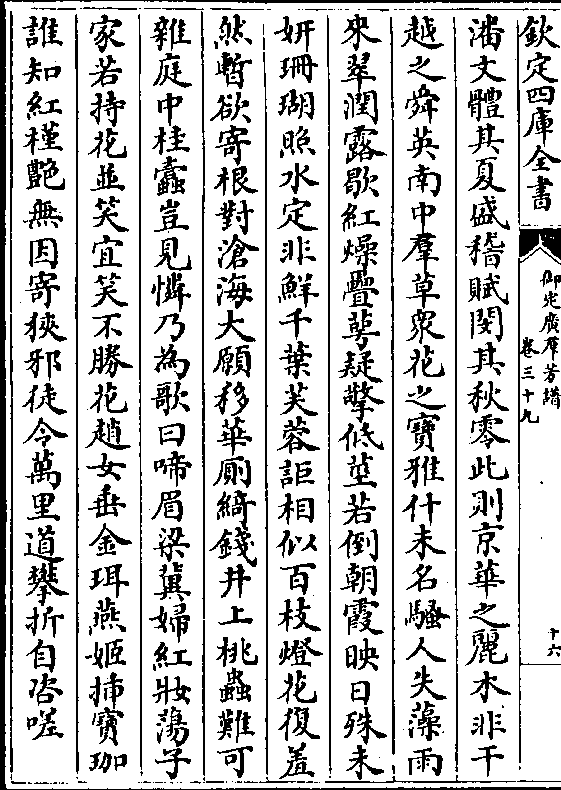 欽定四庫全書
御定廣羣芳譜
卷三十九
十六
潘文體其夏盛嵇賦閔其秋零此則京華之麗木非于
越之舜英南中羣草衆花之寶雅什未名騷人失藻雨
來翠潤露歇紅燥疊萼疑擎低莖若倒朝霞映日殊未
妍珊瑚照水定非鮮千葉芙蓉詎相似百枝燈花復羞
然暫欲寄根對滄海大願移華厠綺錢井上桃蟲難可
雜庭中桂蠹豈見憐乃為歌曰啼眉梁冀婦紅妝蕩子
家若持花並笑宜笑不勝花趙女垂金珥燕姬揷寶珈
誰知紅槿艷無因寄狹邪徒令萬里道攀折自咨嗟